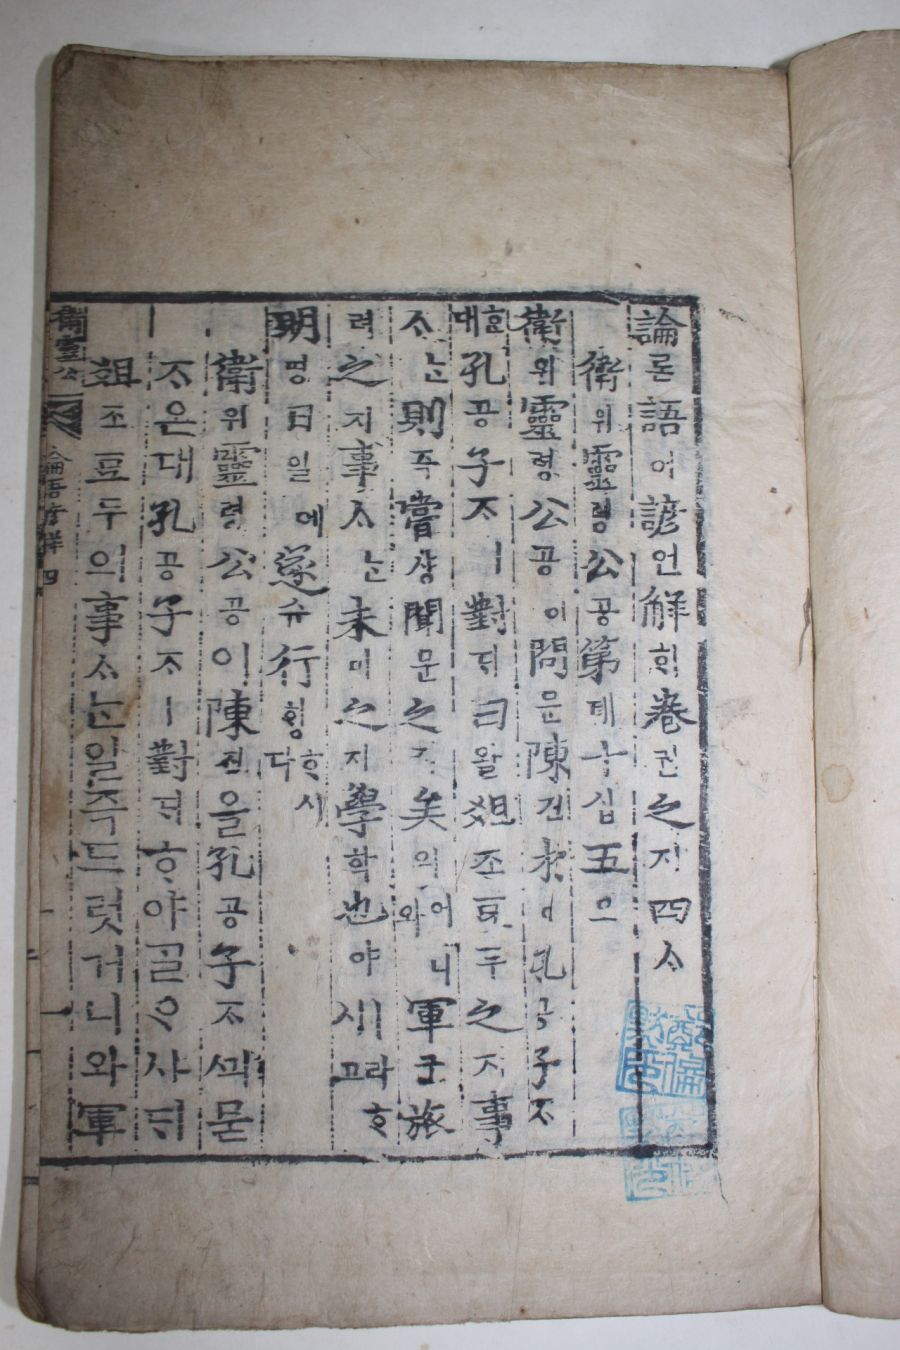 論론語어諺언解ᄒᆡ卷권之지四ᄉᆞ
衛위靈령公공第뎨十십五오
衛위靈령公공이問문陳딘於어孔공子ᄌᆞ
ᄒᆞᆫ대孔공子ᄌᆞㅣ對ᄃᆡ曰왈俎조豆두之지事
ᄉᆞᄂᆞᆫ則즉嘗샹聞문之지矣의어니와軍군旅
려之지事ᄉᆞᄂᆞᆫ未미之지學ᄒᆞᆨ也야ㅣ라ᄒᆞ시고
明명日일에遂슈行ᄒᆡᆼᄒᆞ시다
衛위靈령公공이陳딘을孔공子ᄌᆞᄭᅴ묻
ᄌᆞ온대孔공子ᄌᆞㅣ對ᄃᆡᄒᆞ야ᄀᆞᆯᄋᆞ샤ᄃᆡ
俎조豆두의事ᄉᆞᄂᆞᆫ일즉드럿거니와軍
衛靈公
論語諺解 四